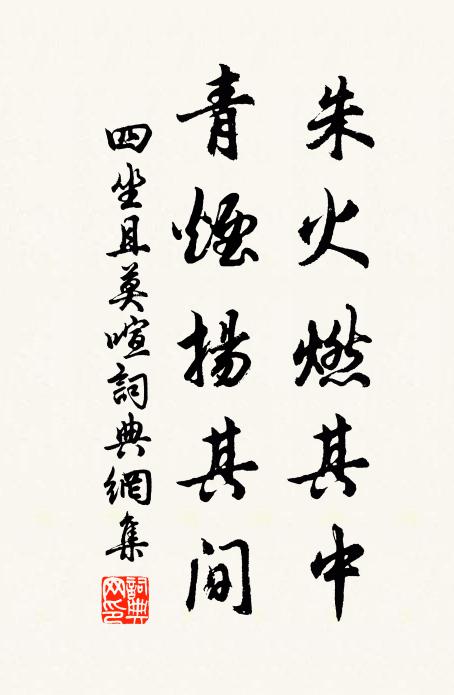 朱火燃其中
青煙揚其間
四坐且莫喧詞典網集
詞典網印